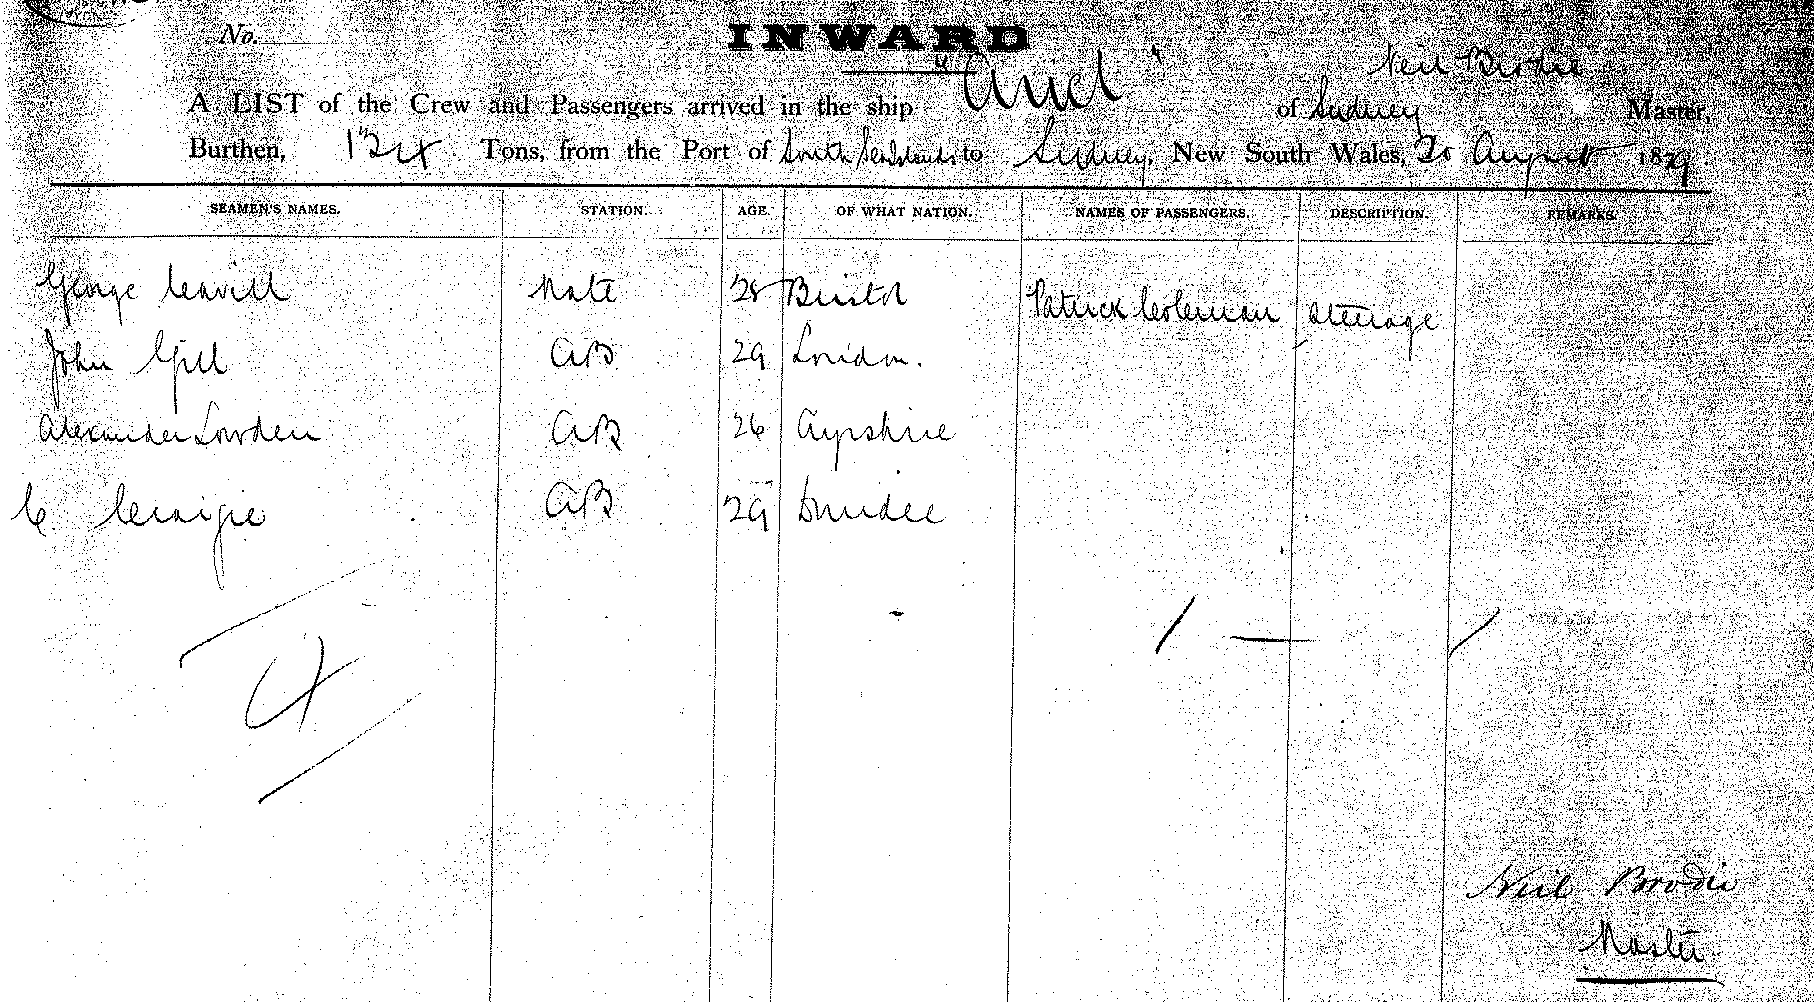 No.
INWARD
Neil Brodie
A LIST of the Crew and Passengers arrived in the ship "Ariel" of Sydney Master,
Burthen, 134 Tons, from the Port of South Sea Islands to Sydney, New South Wales, 20 August 1879.
SEAMEN'S NAMES. STATION. AGE. OF WHAT NATION. NAMES OF PASSENGERS. DESCRIPTION. REMARKS.
George Mate 28 Bristol Patrick Coleman Steerage
John Gill AB 29 London.
Alexander Lowden AB 26 Ayrshire
C Craigie AB 29 Dundee
4 1 —
Neil Brodie
Master